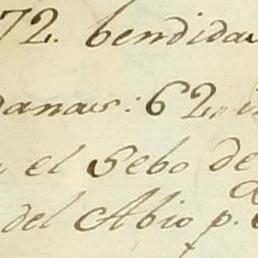 72. bendidas
danas: 62
el Sebo de
del Abio p.